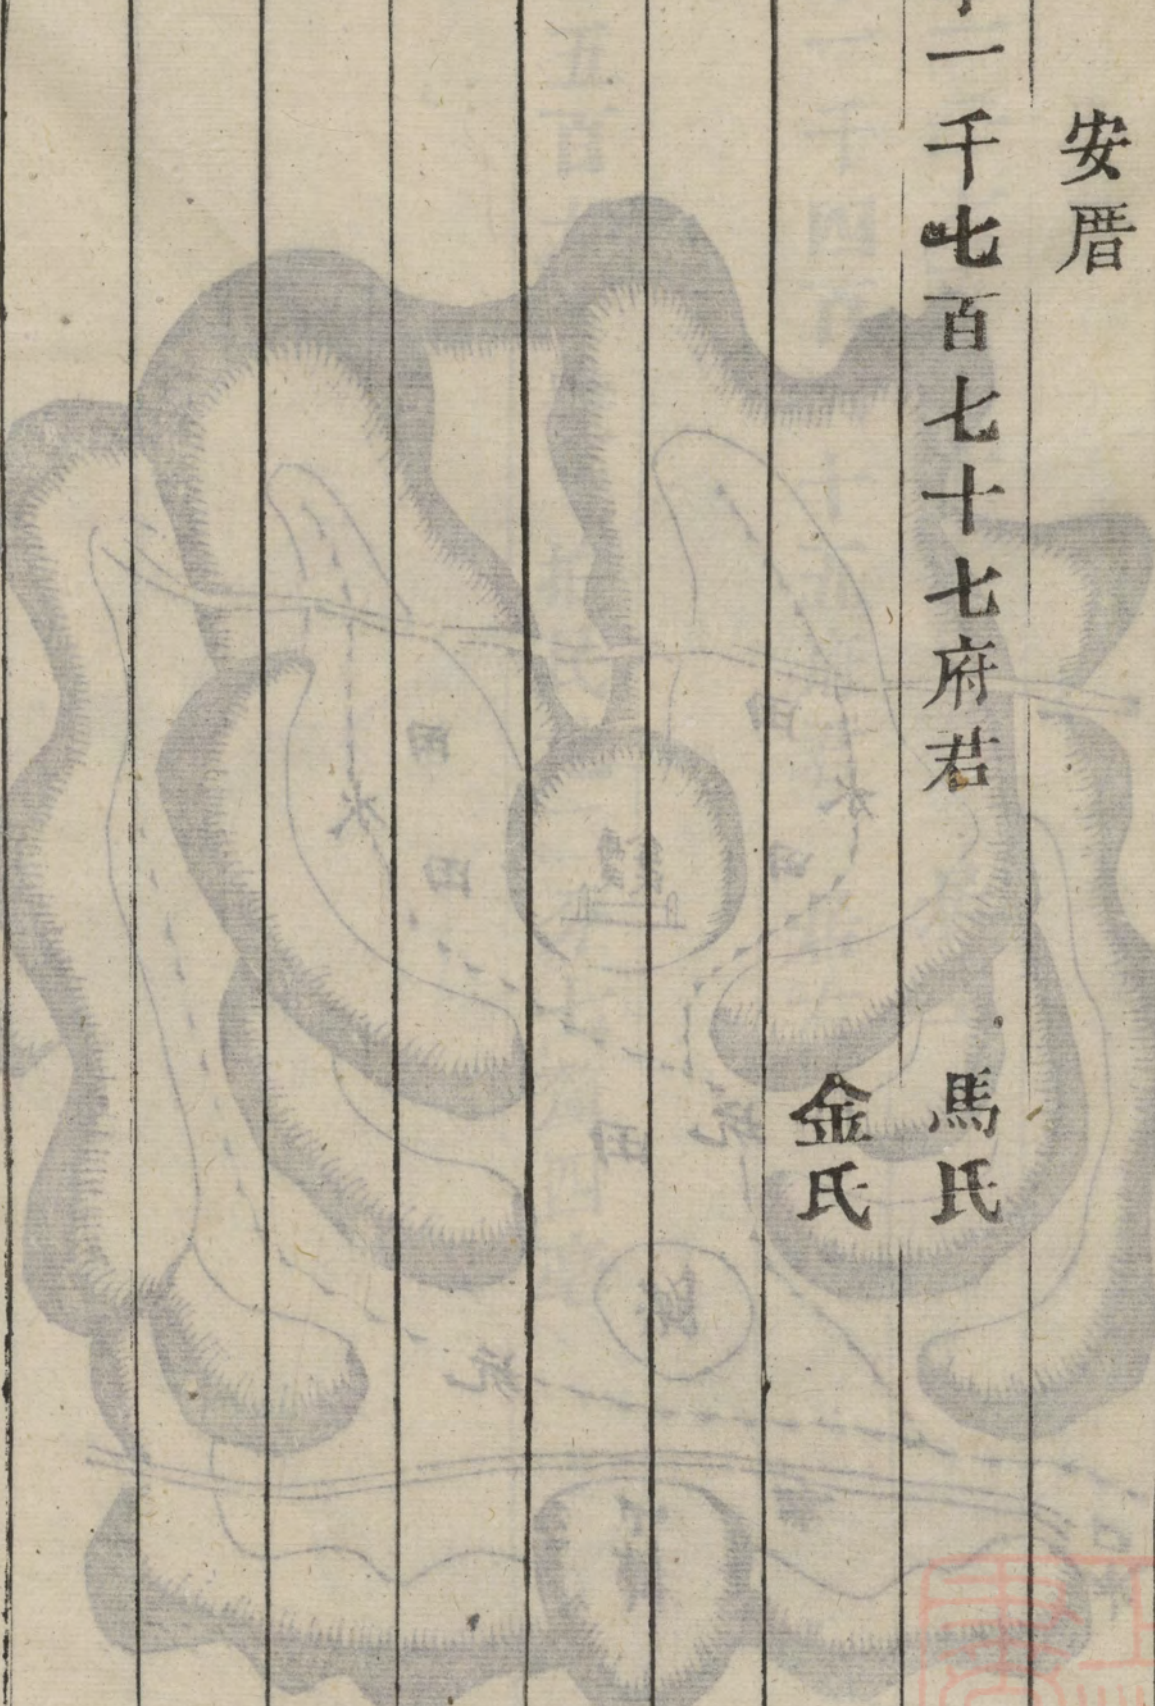 安厝
一千七百七十七府君 馬氏
金氏